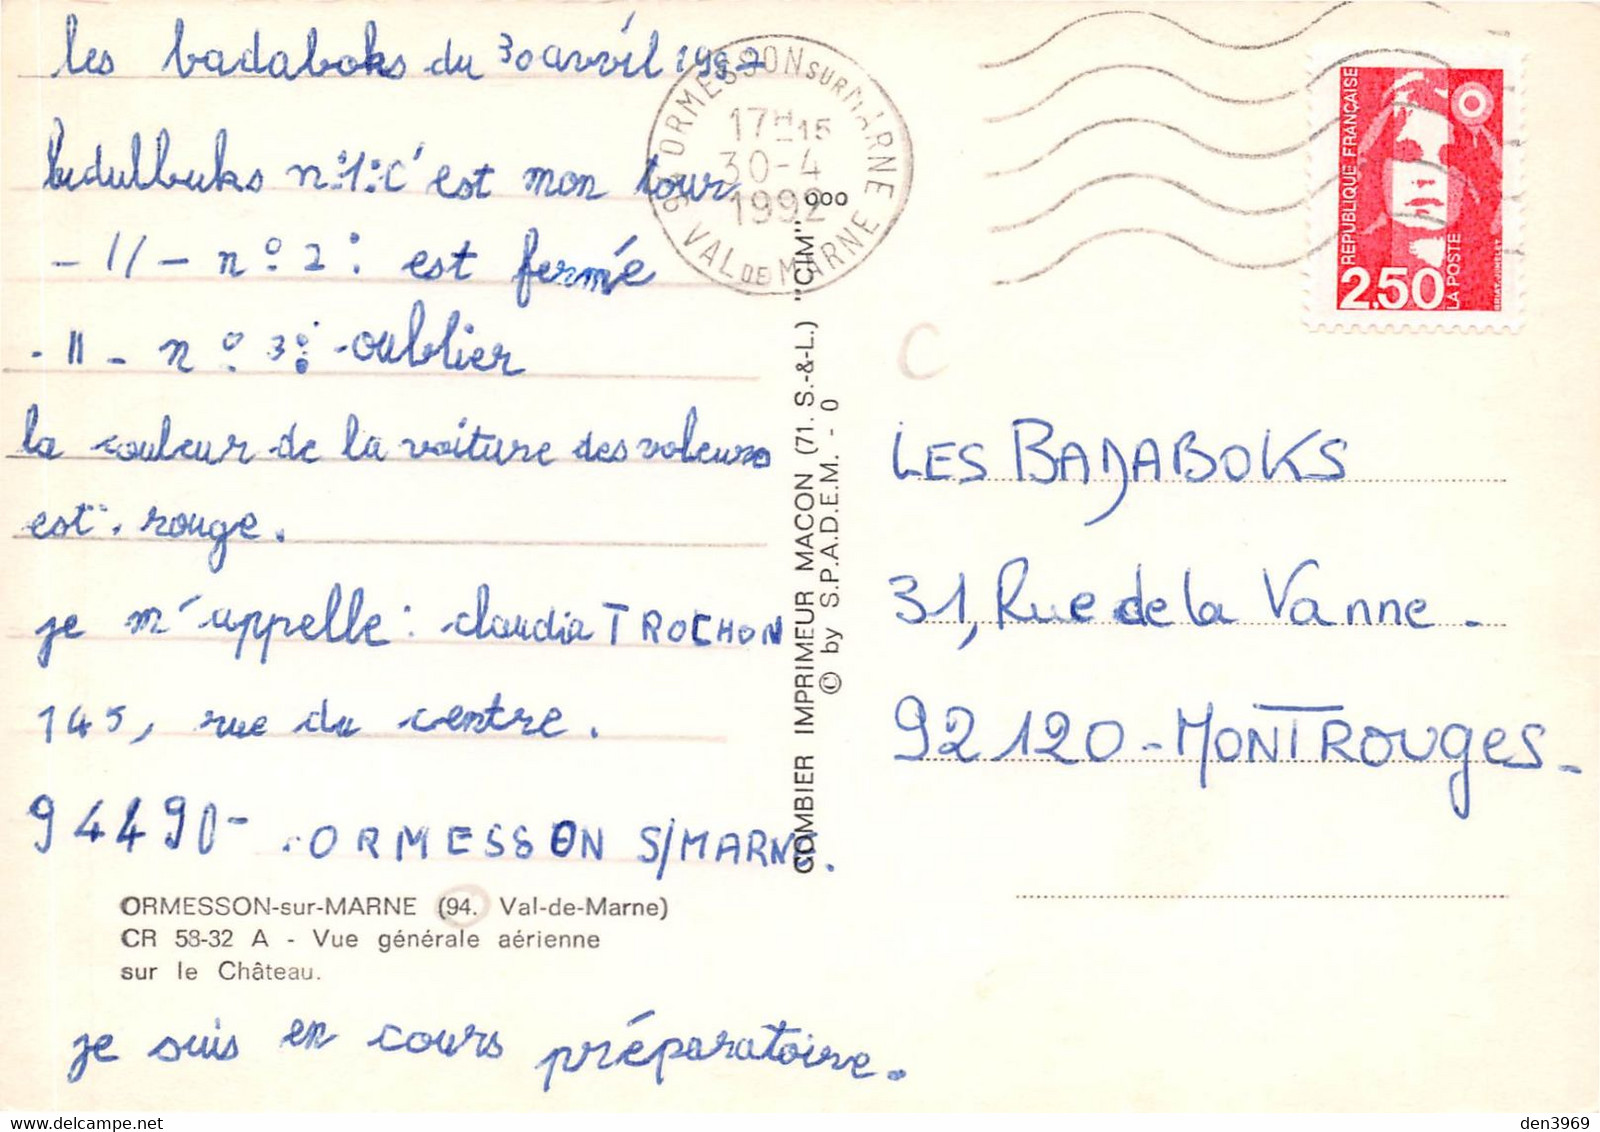 les badaboks du 30 avril 1992
badulbuks n°1: C'est mon tour
- // - n° 2 : est fermé
- II - n° 3 : oublier
la couleur de la voiture des voleurs
est rouge.
je m'appelle : claudia TROCHON
145, rue du centre.
94490 - ORMESSON S/MARNE.
ORMESSON-sur-MARNE (94. Val-de-Marne)
CR 58-32 A - Vue générale aérienne
sur le Château.
je suis en cours préparatoire.
94 ORMESSON SUR MARNE
17H15
30-4
1992
VAL DE MARNE
COMBIER IMPRIMEUR MACON (71. S.-&-L.) "CIM" °°°
© by S.P.A.D.E.M. - 0
REPUBLIQUE FRANÇAISE
2,50
LA POSTE
C
LES BADABOKS
31, Rue de la Vanne -
92120 - MONTROUGES -
den3969